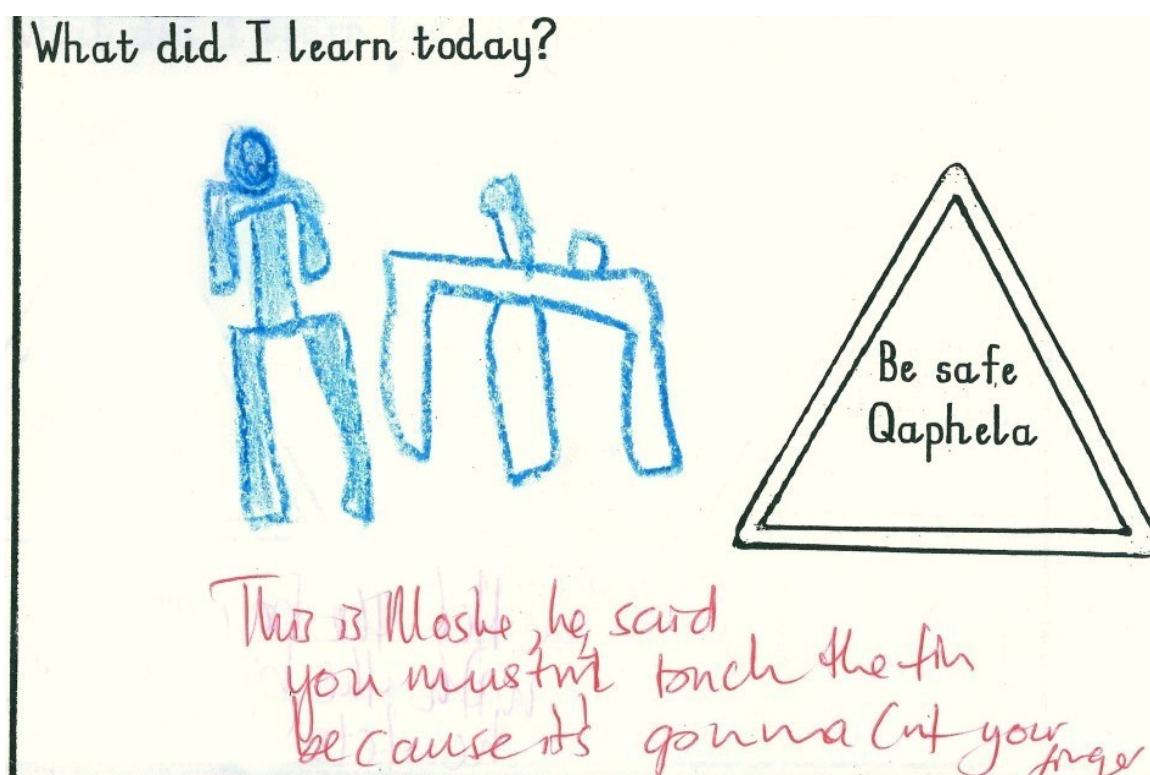 What did I learn today?
Be safe
Qaphela
This is Moshe, he said
you mustn't touch the tin
because it's gonna cut your
finger